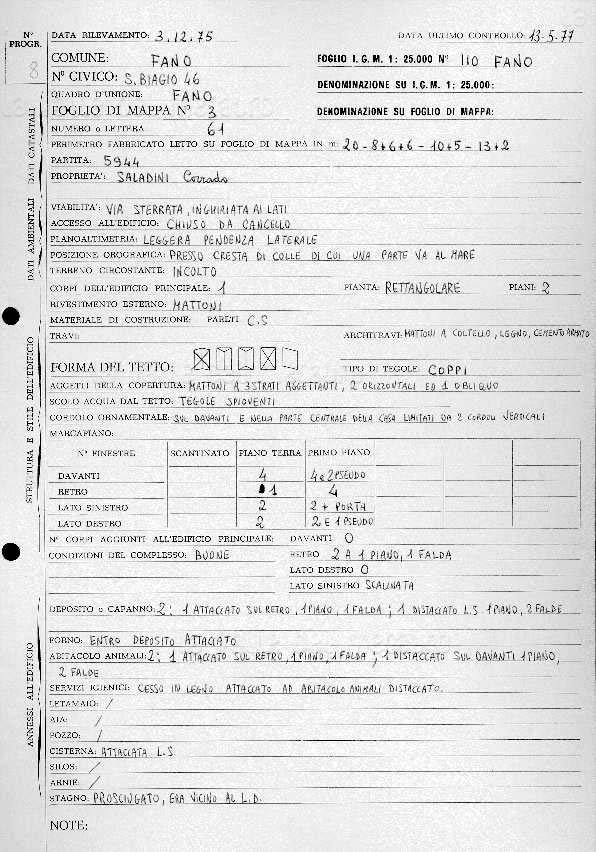 N° PROGR. 8
DATA RILEVAMENTO: 3.12.75 DATA ULTIMO CONTROLLO: 13-5-77
COMUNE: FANO FOGLIO I.G.M. 1: 25.000 N° 110 FANO
N° CIVICO: S. BIAGIO 46 DENOMINAZIONE SU I.G.M. 1: 25.000:
QUADRO D'UNIONE: FANO
FOGLIO DI MAPPA N° 3 DENOMINAZIONE SU FOGLIO DI MAPPA:
NUMERO o LETTERA 61
PERIMETRO FABBRICATO LETTO SU FOGLIO DI MAPPA IN m: 20-8+6+6-10+5-13+2
PARTITA: 5944
PROPRIETA': SALADINI Corrado
DATI AMBIENTALI DATI CATASTALI
VIABILITA': VIA STERRATA, INGHIAIATA AI LATI
ACCESSO ALL'EDIFICIO: CHIUSO DA CANCELLO
PLANOALTIMETRIA: LEGGERA PENDENZA LATERALE
POSIZIONE OROGRAFICA: PRESSO CRESTA DI COLLE DI CUI UNA PARTE VA AL MARE
TERRENO CIRCOSTANTE: INCOLTO
CORPI DELL'EDIFICIO PRINCIPALE: 1 PIANTA: RETTANGOLARE PIANI: 2
RIVESTIMENTO ESTERNO: MATTONI
MATERIALE DI COSTRUZIONE: PARETI C.S
TRAVI: ARCHITRAVI: MATTONI A COLTELLO, LEGNO, CEMENTO ARMATO
FORMA DEL TETTO: TIPO DI TEGOLE: COPPI
AGGETTI DELLA COPERTURA: MATTONI A 3 STRATI AGGETTANTI, 2 ORIZZONTALI ED 1 OBLIQUO
SCOLO ACQUA DAL TETTO: TEGOLE SPIOVENTI
CORDOLO ORNAMENTALE: SUL DAVANTI E NELLA PARTE CENTRALE DELLA CASA LIMITATI DA 2 CORDOLI VERTICALI
MARCAPIANO:
STRUTTURA E STILE DELL'EDIFICIO
N° FINESTRE SCANTINATO PIANO TERRA PRIMO PIANO
DAVANTI 4 4 e 2 PSEUDO
RETRO 1 4
LATO SINISTRO 2 2 + PORTA
LATO DESTRO 2 2 E 1 PSEUDO
N° CORPI AGGIUNTI ALL'EDIFICIO PRINCIPALE: DAVANTI 0
CONDIZIONI DEL COMPLESSO: BUONE RETRO 2 A 1 PIANO, 1 FALDA
LATO DESTRO 0
LATO SINISTRO SCALINATA
DEPOSITO o CAPANNO: 2; 1 ATTACCATO SUL RETRO, 1 PIANO, 1 FALDA; 1 DISTACCATO L.S 1 PIANO, 2 FALDE
FORNO: ENTRO DEPOSITO ATTACCATO
ABITACOLO ANIMALI: 2; 1 ATTACCATO SUL RETRO, 1 PIANO, 1 FALDA; 1 DISTACCATO SUL DAVANTI 1 PIANO,
2 FALDE
SERVIZI IGIENICI: CESSO IN LEGNO ATTACCATO AD ABITACOLO ANIMALI DISTACCATO.
LETAMAIO: /
AIA: /
POZZO: /
CISTERNA: ATTACCATA L.S
SILOS: /
ARNIE: /
STAGNO: PROSCIUGATO, ERA VICINO AL L.D.
ANNESSI ALL'EDIFICIO
NOTE: